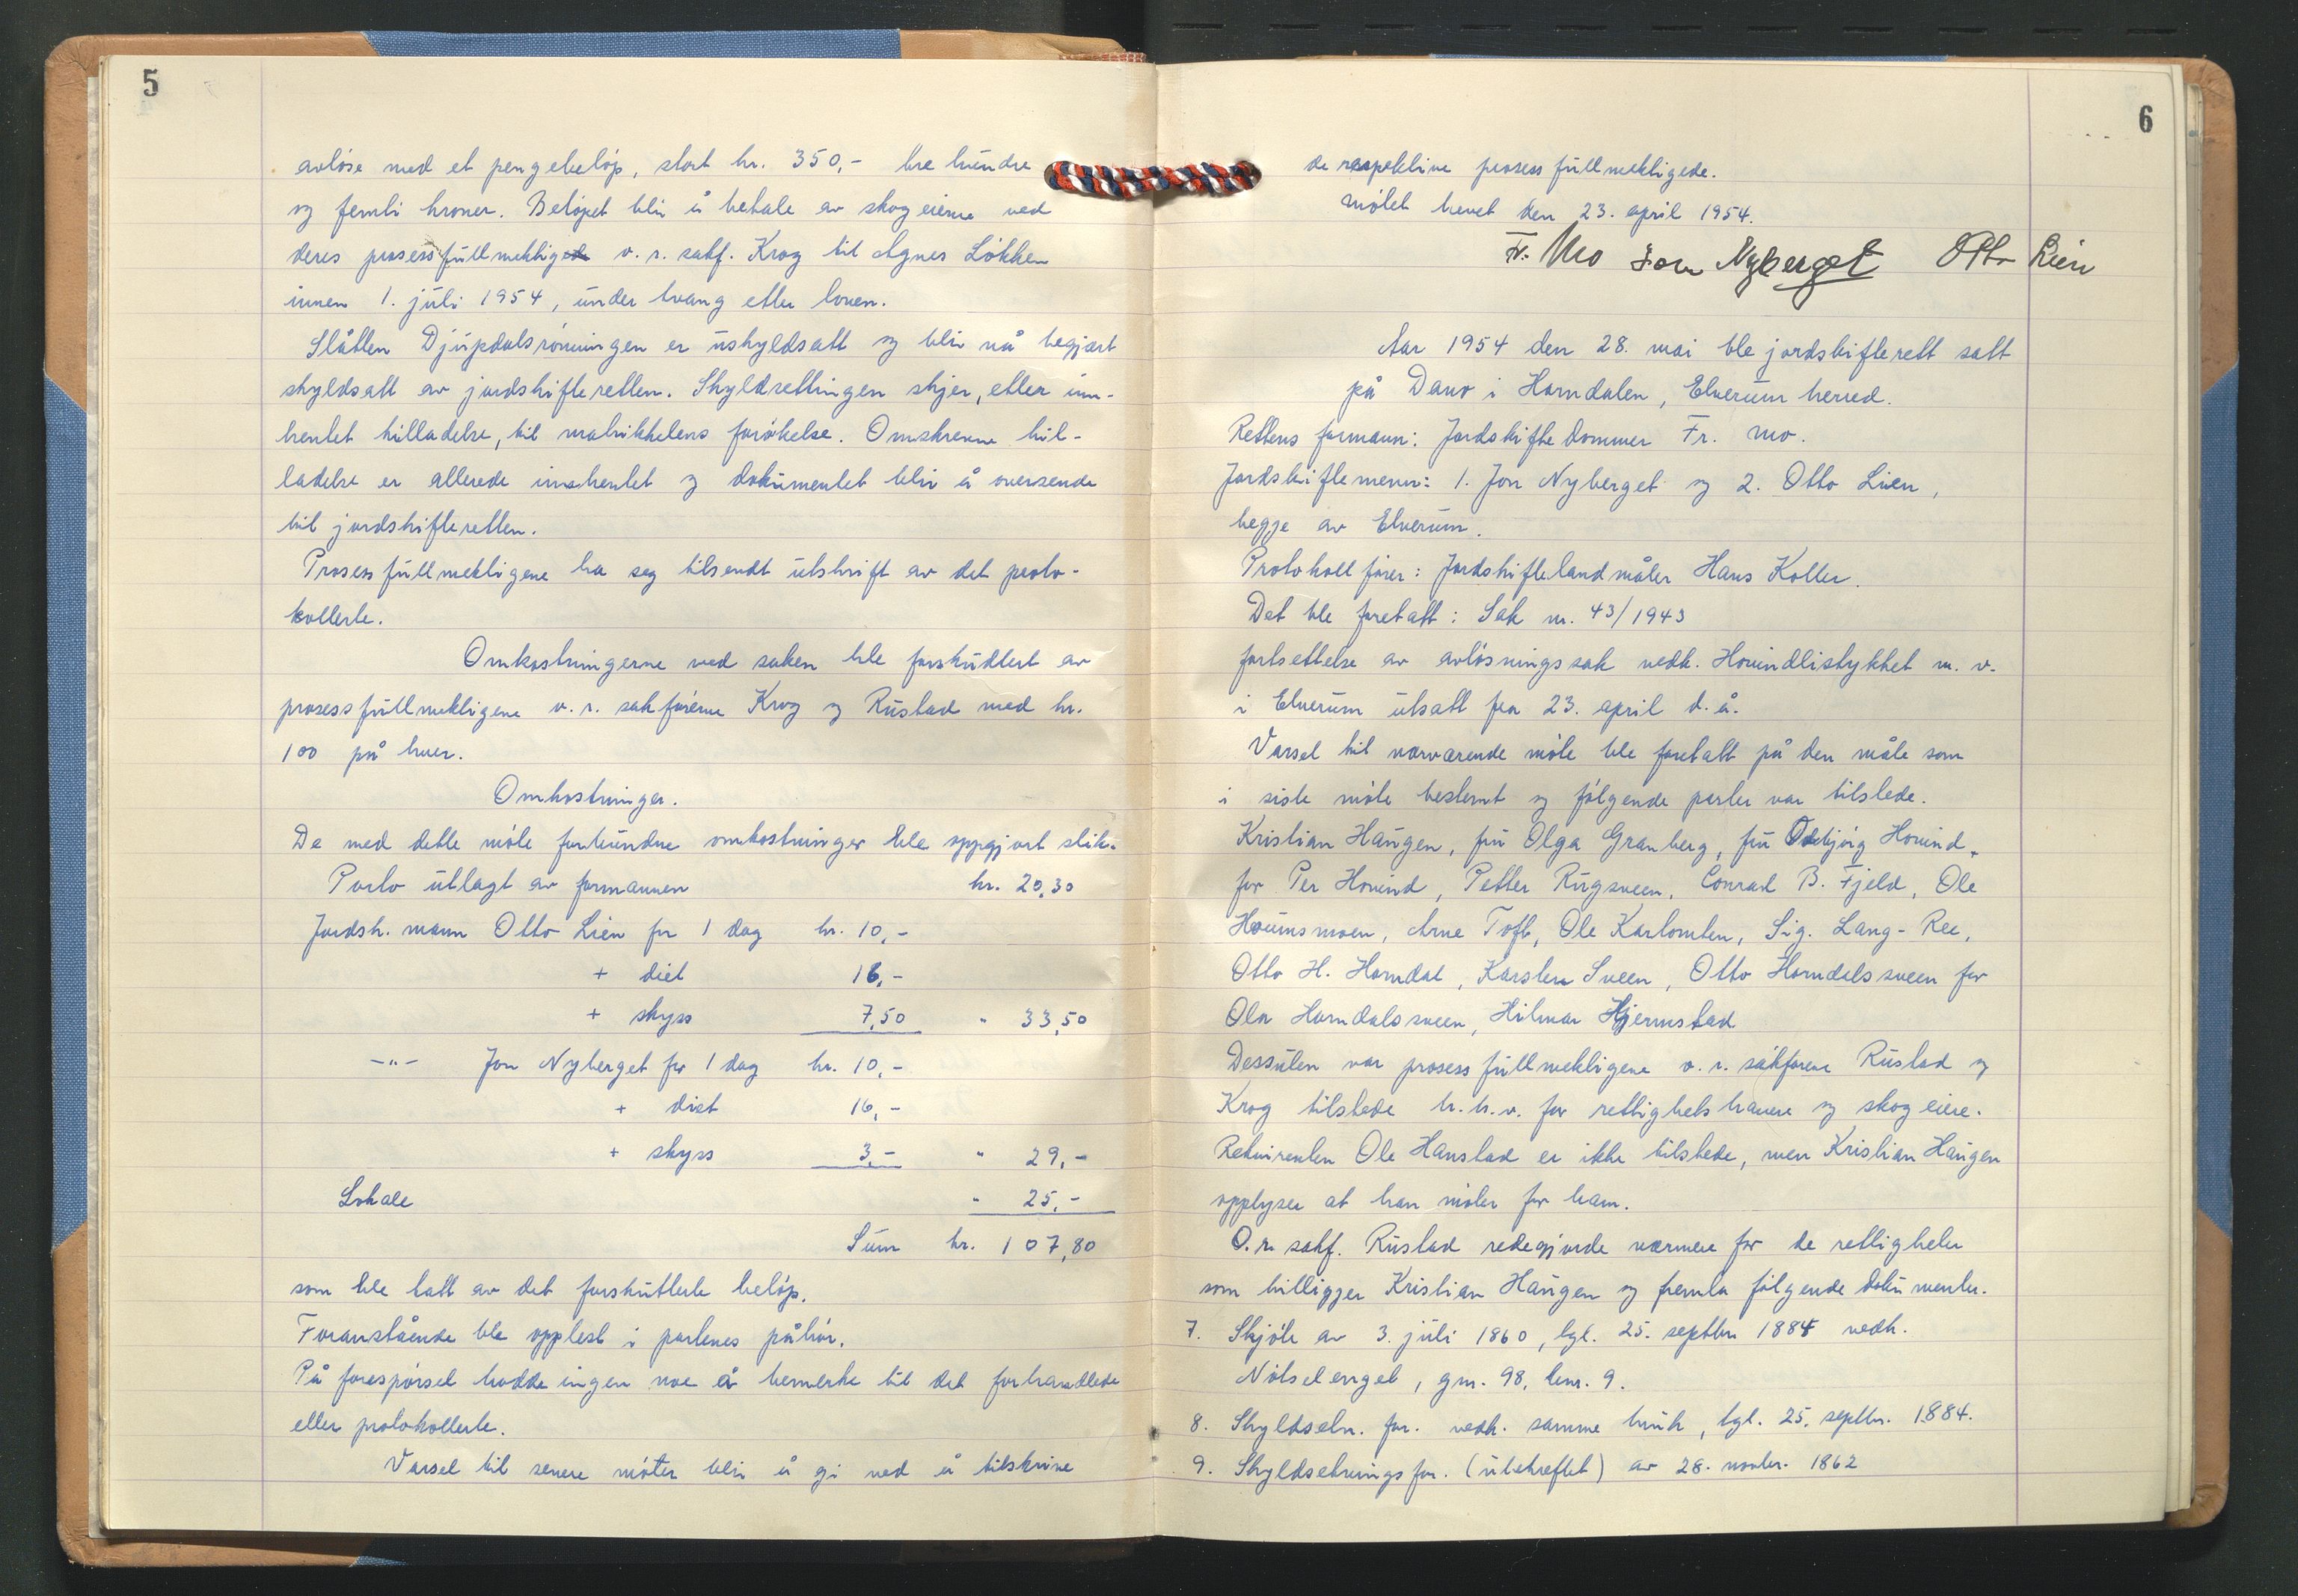 5
avløse med et pengebeløp, stort kr. 350,- tre hundre
og femti kroner. Beløpet blir å betale av skogeierne ved
deres prosessfullmektigede o.r. sakf. Krog til Agnes Løkken
innen 1. juli 1954, under tvang etter loven.
Slåtten Djupdalsrønningen er uskyldsatt og blir nå begjært
skyldsatt av jordskifteretten. Skyldsettingen skjer, etter inn-
hentet tilladelse, til matrikkelens forøkelse. Omskrevne til-
ladelse er allerede innhentet og dokumentet blir å oversende
til jordskifteretten.
Prosessfullmektigene ba seg tilsendt utskrift av det proto-
kollerte.
Omkostningerne ved saken ble forskuttert av
prosessfullmektigene o.r. sakførerne Krog og Rustad med kr.
100 på hver.
Omkostninger.
De med dette møte forbundne omkostninger ble oppgjort slik.
Porto utlagt av formannen kr. 20,30
Jordsk. mann Otto Lien for 1 dag kr. 10,-
+ diet 16,-
+ skyss 7,50 " 33,50
-"- Jon Nyberget for 1 dag kr. 10,-
+ diet 16,-
+ skyss 3,- " 29,-
Lokale " 25,-
Sum kr. 107,80
som ble tatt av det forskutterte beløp.
Foranstående ble opplest i partenes påhør.
På forespørsel hadde ingen noe å bemerke til det forhandlede
eller protokollerte.
Varsel til senere møter blir å gi ved å tilskrive
6
de respektive prosessfullmektigede.
Møtet hevet den 23. april 1954.
Fr. Mo Jon Nyberget Otto Lien
Aar 1954 den 28. mai ble jordskifterett satt
på Danv i Horndalen, Elverum herred.
Rettens formann: Jordskiftedommer Fr. Mo.
Jordskiftemenn: 1. Jon Nyberget og 2. Otto Lien,
begge av Elverum.
Protokollfører: Jordskiftelandmåler Hans Koller.
Det ble foretatt: Sak nr. 43/1943
fortsettelse av avløsningssak vedk. Hovindlistykket m.v.
i Elverum utsatt fra 23. april d.å.
Varsel til nærværende møte ble foretatt på den måte som
i siste møte bestemt og følgende parter var tilstede.
Kristian Haugen, fru Olga Granberg, fru Hovind,
for Per Hovind, Petter Rugsveen, Conrad B. Fjeld, Ole
Houmsmoen, Arne Toft, Ole Karlomten, Sig. Lang-Ree,
Otto H. Horndal, Karsten Sveen, Otto Horndalssveen for
Ola Horndalssveen, Hilmar Hjernstad
Dessuten var prosessfullmektigene o.r. sakførere Rustad og
Krog tilstede h.h.v. for rettighetshavere og skogeiere.
Rekvirenten Ole Hanstad er ikke tilstede, men Kristian Haugen
opplyser at han møter for ham.
O.r. sakf. Rustad redegjorde nærmere for de rettigheter
som tilligger Kristian Haugen og fremla følgende dokumenter.
7. Skjøte av 3. juli 1860, tgl. 25. septbr. 1884 vedk.
Nötselenget, gnr. 98, bnr. 9.
8. Skyldseln. for. vedk. samme bruk, tgl. 25. septbr. 1884.
9. Skyldsetningsfor. (ubekreftet) av 28. novbr. 1862